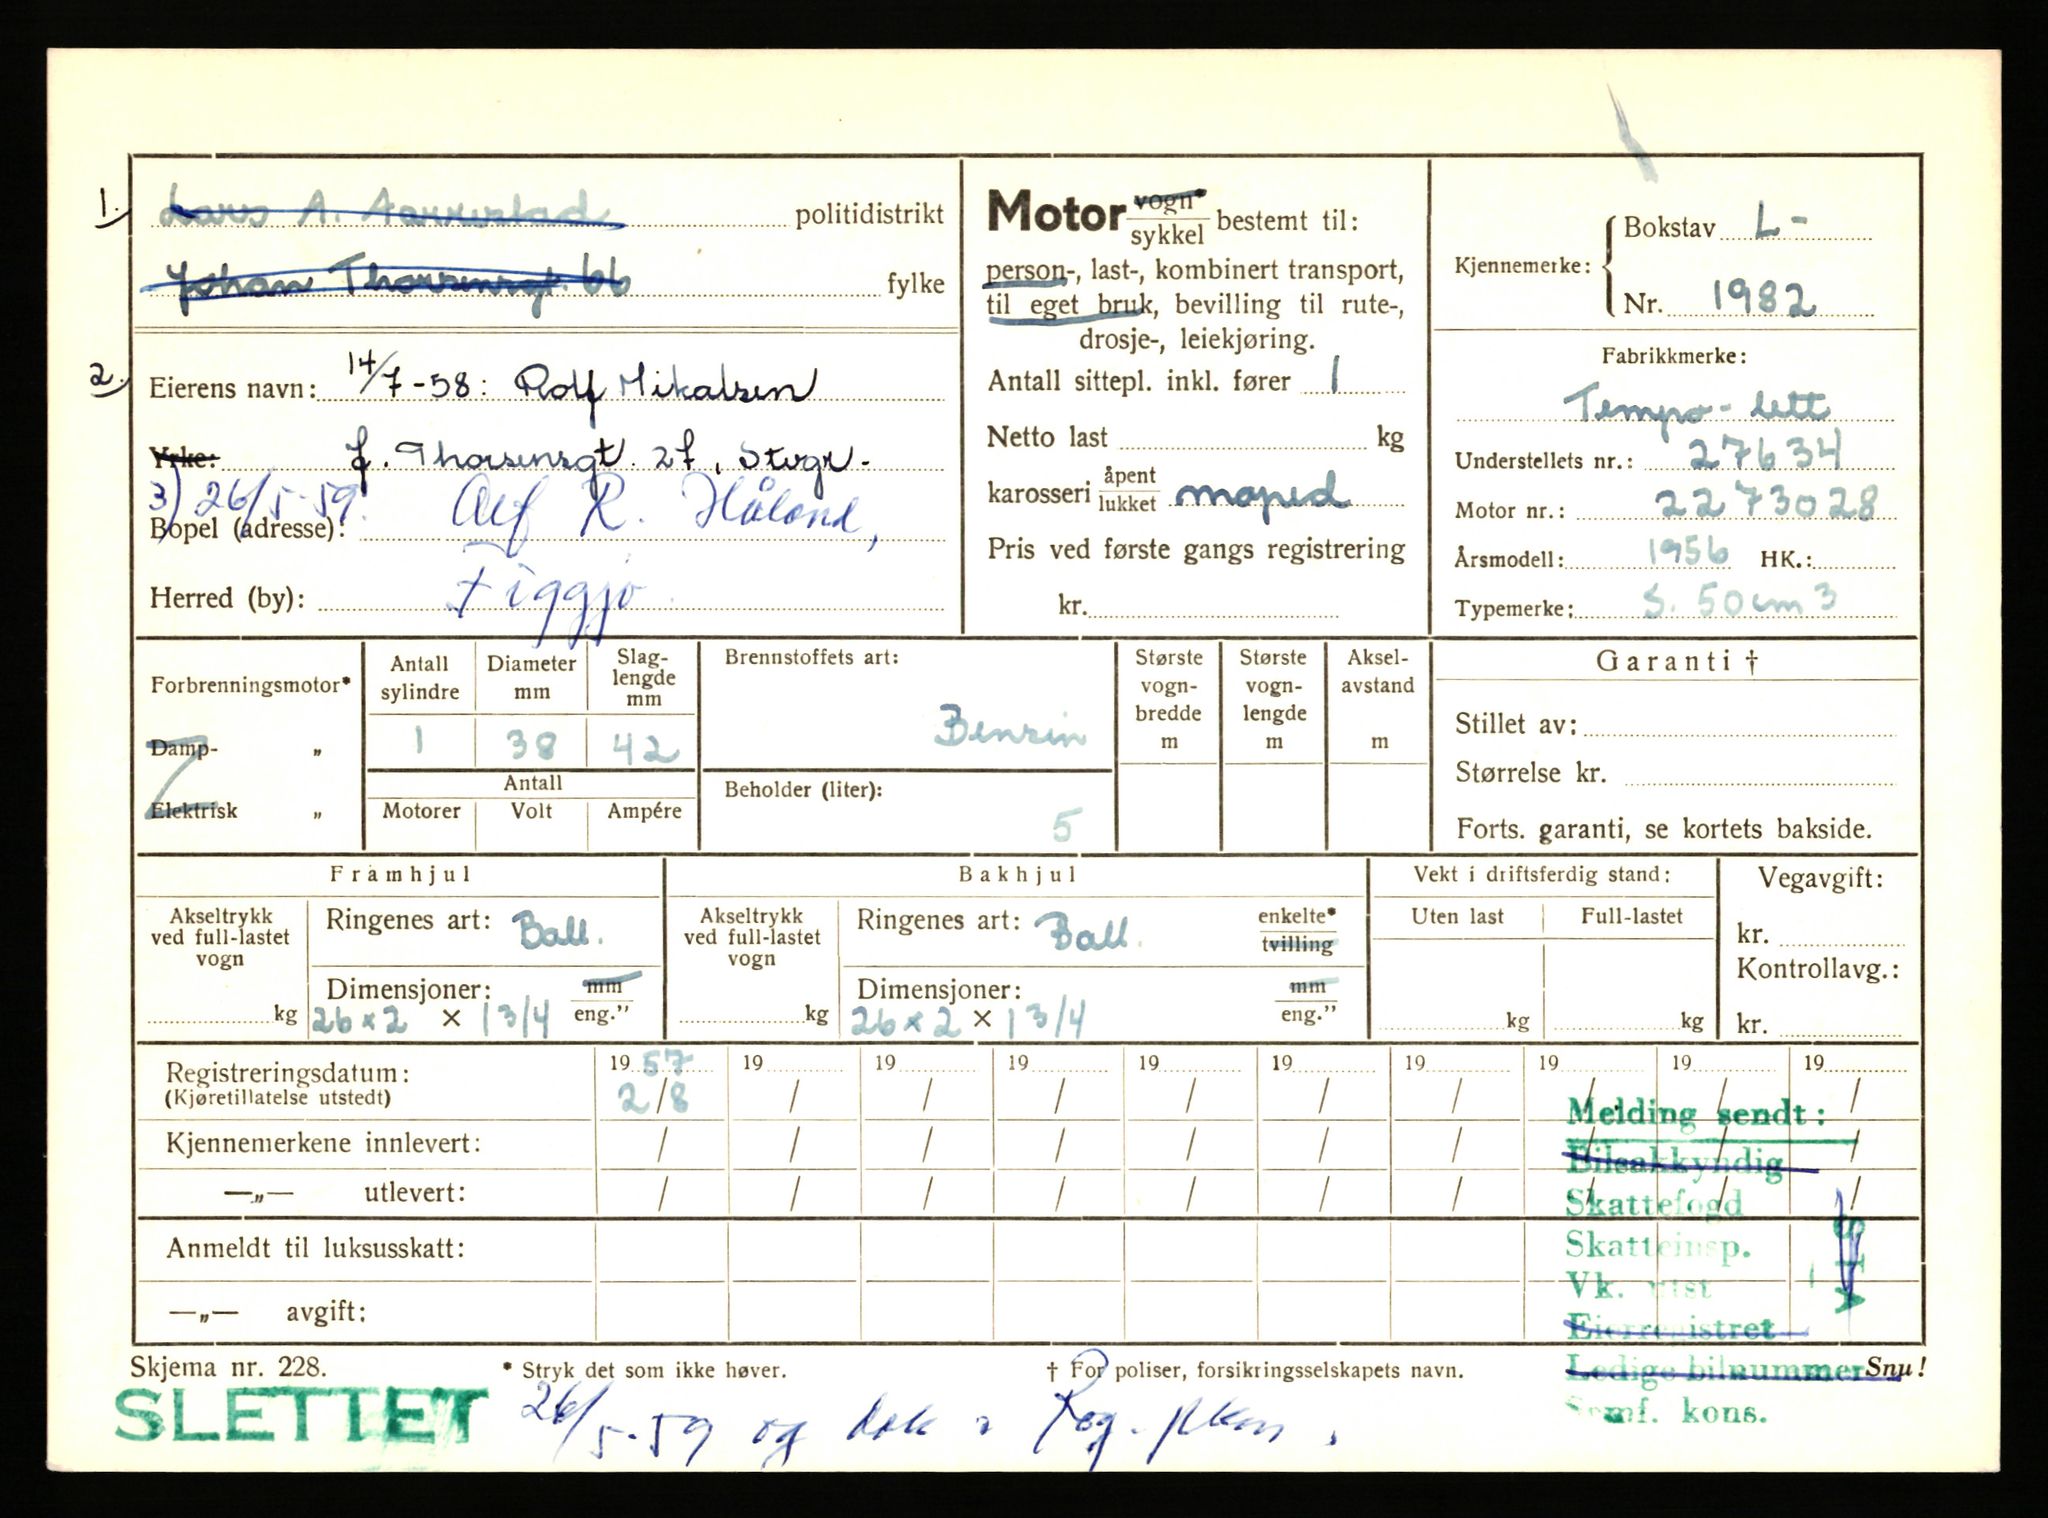 1. Lars A. Aarrestad politidistrikt
Johan Thorsensgt. 66 fylke
2. Eierens navn: 14/7-58: Rolf Mikalsen
Yrke: J. Thorsensgt. 27, Stvgr.
3) 26/5-59. Alf R. Håland,
Bopel (adresse):
Herred (by): Figgjo
Motor vogn* / sykkel bestemt til:
person-, last-, kombinert transport,
til eget bruk, bevilling til rute-,
drosje-, leiekjøring.
Antall sittepl. inkl. fører 1
Netto last kg
karosseri åpent / lukket moped
Pris ved første gangs registrering
kr.
Kjennemerke: Bokstav L-
Nr. 1982
Fabrikkmerke:
Tempo-lett
Understellets nr.: 27634
Motor nr.: 2273028
Årsmodell: 1956 HK.:
Typemerke: S. 50 cm 3
Forbrenningsmotor*
Damp- „
Elektrisk „
Antall sylindre
1
Diameter mm
38
Slag-lengde mm
42
Antall
Motorer Volt Ampére
Brennstoffets art:
Benzin
Beholder (liter):
5
Største vogn-bredde m
Største vogn-lengde m
Aksel-avstand m
Garanti †
Stillet av:
Størrelse kr.
Forts. garanti, se kortets bakside.
Framhjul
Akseltrykk ved full-lastet vogn
kg
Ringenes art: Ball.
Dimensjoner: mm / eng.”
26 x 2 × 1 3/4
Bakhjul
Akseltrykk ved full-lastet vogn
kg
Ringenes art: Ball. enkelte* / tvilling
Dimensjoner: mm / eng.”
26 x 2 × 1 3/4
Vekt i driftsferdig stand:
Uten last Full-lastet
kg kg
Vegavgift:
kr.
Kontrollavg.:
kr.
Registreringsdatum: 19 57 19 19 19 19 19 19 19 19 19
(Kjøretillatelse utstedt) 2/8 / / / / / / / / /
Kjennemerkene innlevert: / / / / / / / / / /
—„— utlevert: / / / / / / / / / /
Anmeldt til luksusskatt:
—„— avgift:
Melding sendt:
Bilsakkyndig
Skattefogd
Skatteinsp.
Vk. utst
Eierregistret
Ledige bilnummer
Semf. kons.
Skjema nr. 228.
* Stryk det som ikke høver.
† For poliser, forsikringsselskapets navn.
Snu!
SLETTET 26/5-59 og